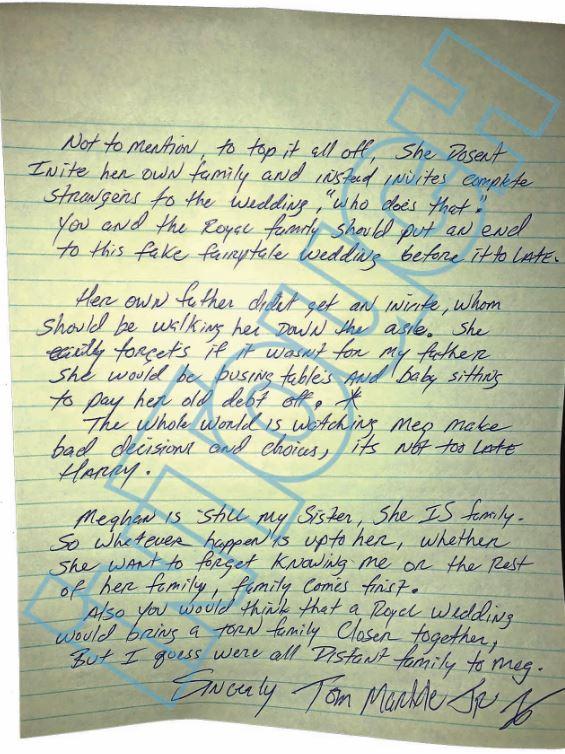 Not to mention, to top it all off, She Dosent
Inite her own family and insted invites complete
Strangers to the wedding, "who does that".
You and the Royal family should put an end
to this fake fairytale wedding before it to LATE.
Her own father didnt get an inite, whom
Should be walking her Down the asle. She
forgets if it wasnt for my father
She would be busing tables AND baby sitting
to pay her old debt off. *
The whole world is watching Meg make
bad decisions and choices, its Not too LATE
HARRY.
Meghan is still my Sister, She IS family.
So whatever happen is upto her, whether
She WANT to forget Knowing me or the Rest
of her family, family Comes first.
Also you would think that a Royal Wedding
would bring a Torn family Closer together,
But I guess were all Distant family to Meg.
Sincerly Tom Markle Jr
InTouch